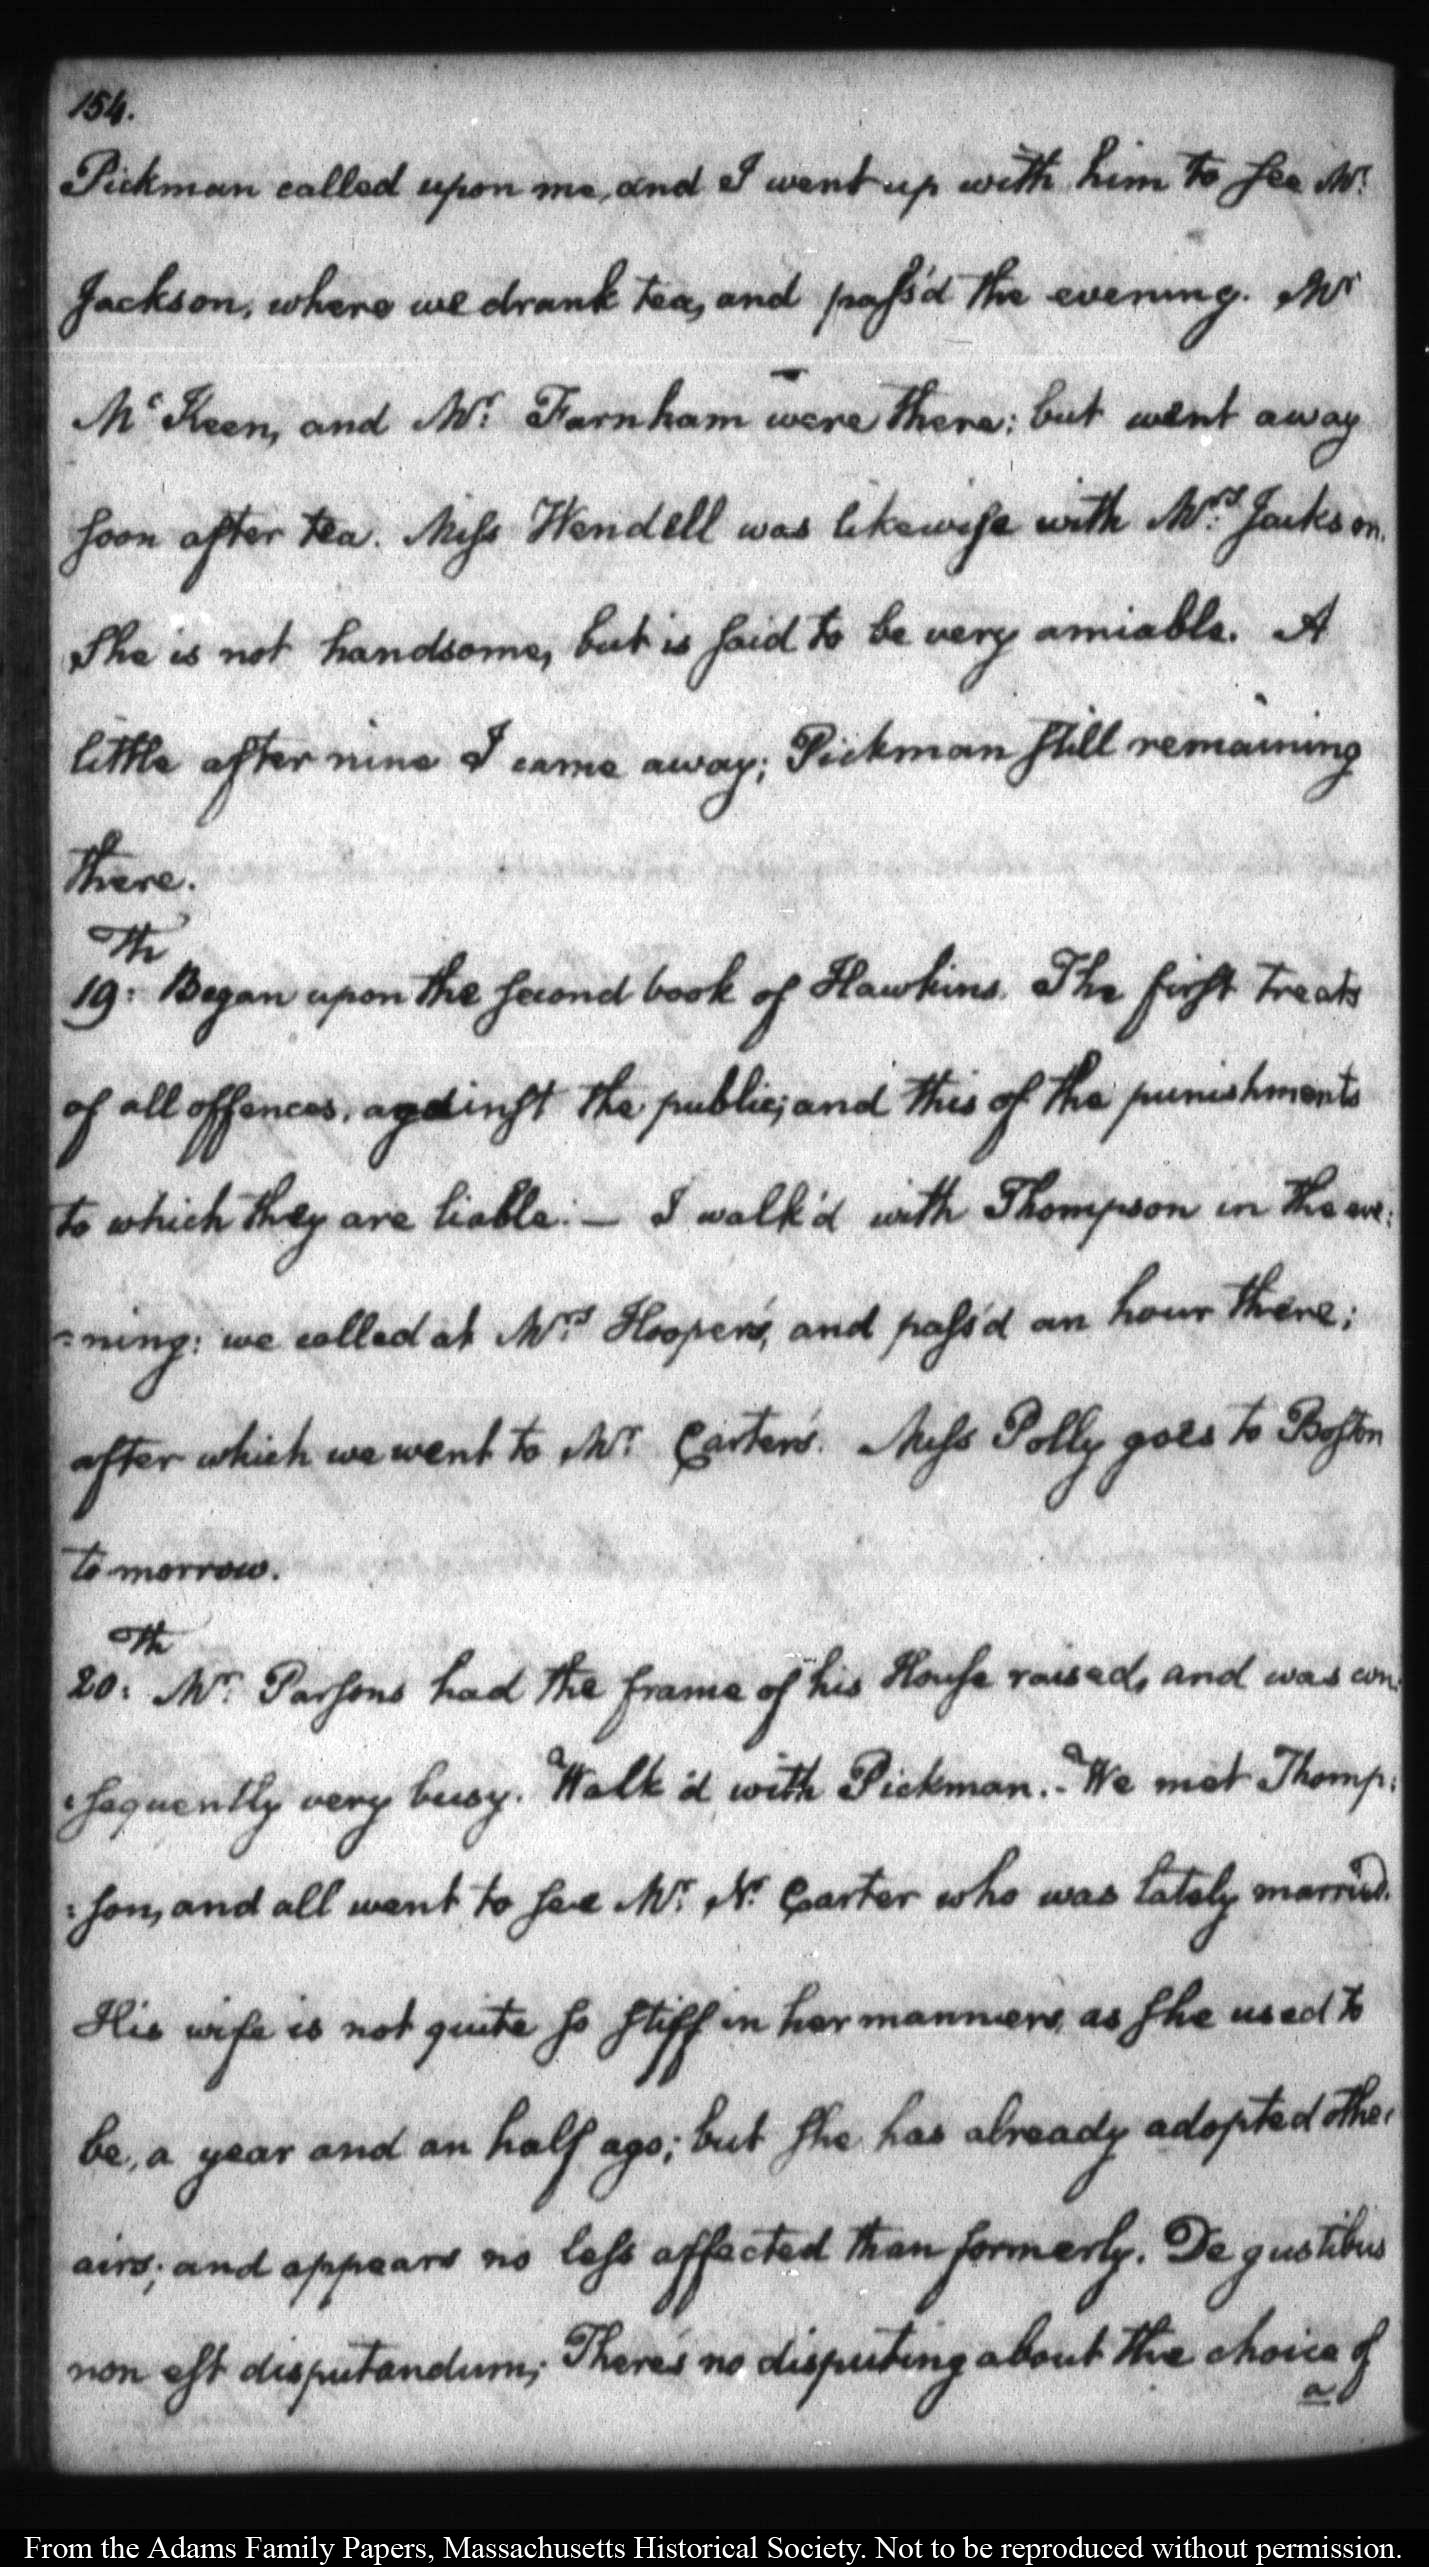 154.
Pickman called upon me, and I went up with him to see Mr.
Jackson, where we drank tea, and pass'd the evening. Mr
McKeen, and Mr. Farnham were there; but went away
soon after tea. Miss Wendell was likewise with Mrs. Jackson.
She is not handsome, but is said to be very amiable. A
little after nine I came away; Pickman still remaining
there.
Th
19: Began upon the second book of Hawkins. The first treats
of all offences, against the public; and this of the punishments
to which they are liable. — I walk'd with Thompson in the eve:
:ning: we called at Mrs. Hooper's, and pass'd an hour there;
after which we went to Mr. Carter's. Miss Polly goes to Boston
to morrow.
Th
20: Mr. Parsons had the frame of his House raised, and was con:
:sequently very busy. Walk'd with Pickman. - We met Thomp:
:son, and all went to see Mr. N. Carter who was lately married.
His wife is not quite so stiff in her manners, as she used to
be, a year and an half ago; but she has already adopted other
airs; and appears no less affected than formerly. De gustibus
non est disputandum; There's no disputing about the choice of
a
From the Adams Family Papers, Massachusetts Historical Society. Not to be reproduced without permission.